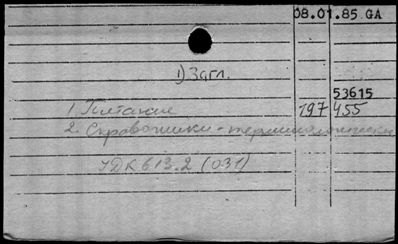 08.01.85 GA
1) Загл.
53615
1. Питание 197 455
2. Справочники - терминологически
УДК 613.2 (031)